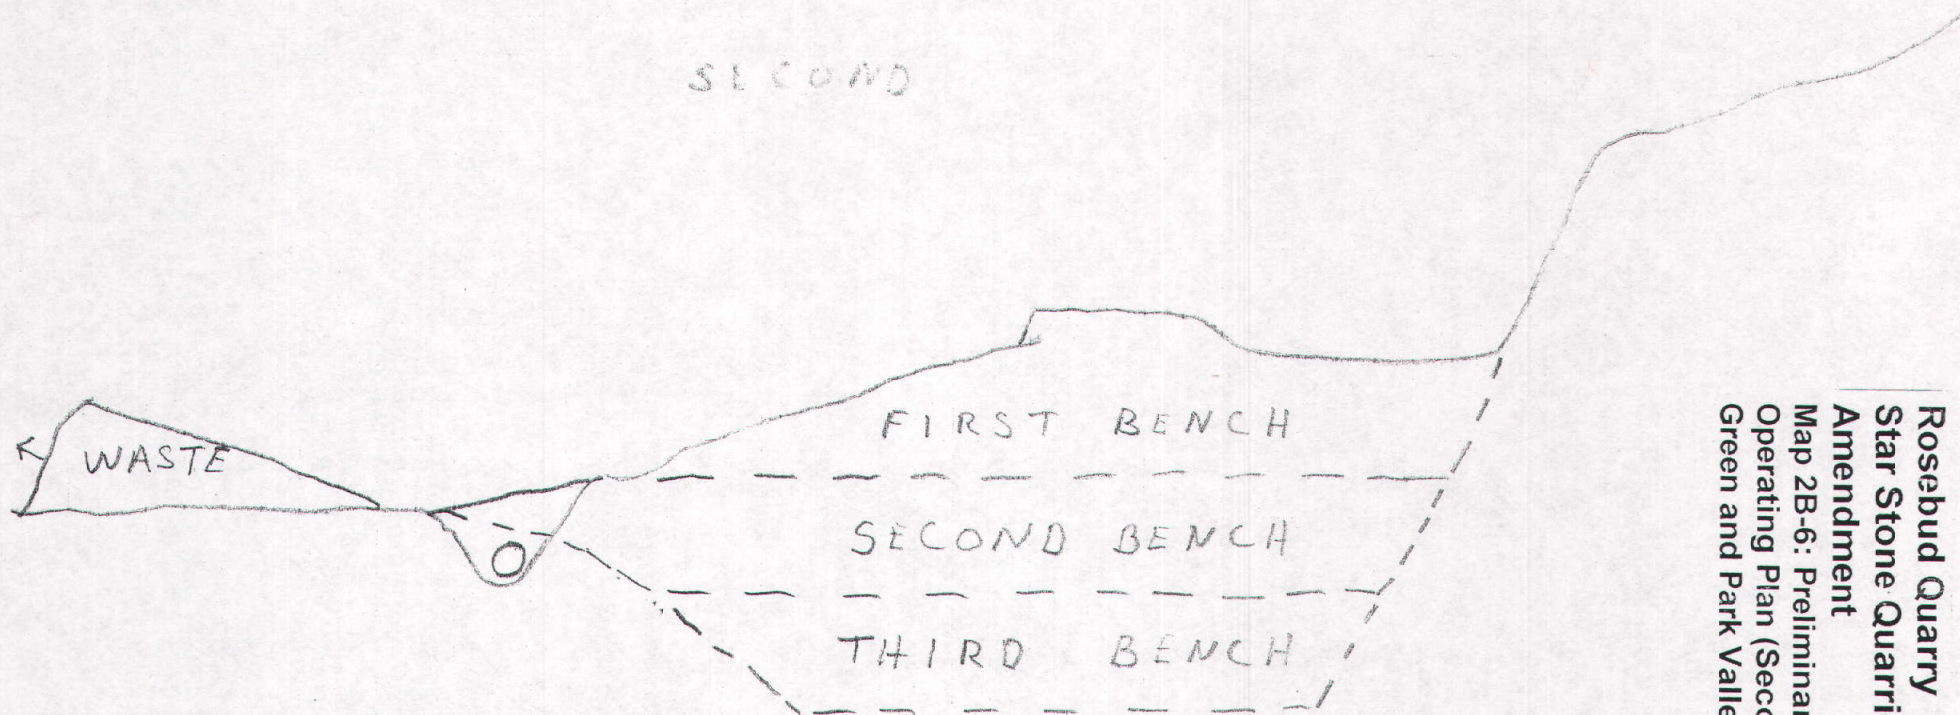 SECOND
FIRST BENCH
WASTE
SECOND BENCH
THIRD BENCH
Rosebud Quarry
Star Stone Quarri
Amendment
Map 2B-6: Preliminar
Operating Plan (Seco
Green and Park Valle